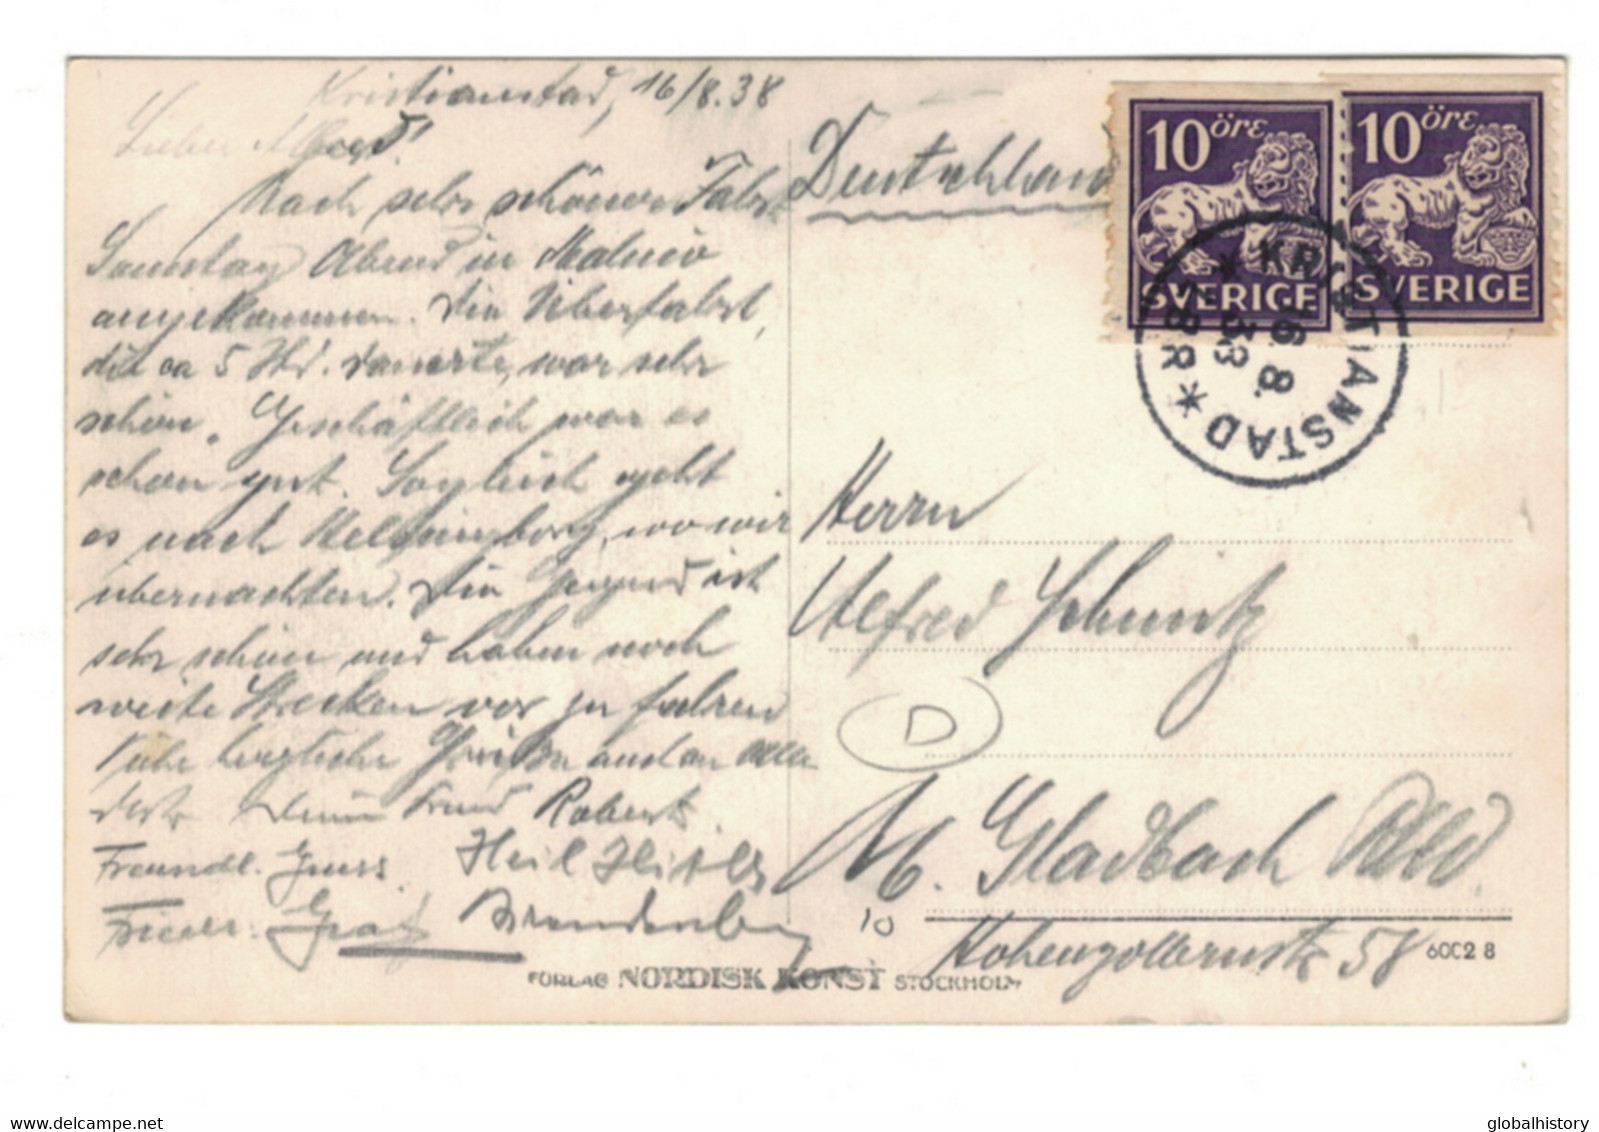 Kristianstad, 16/8.38
Lieber Alfred!
Nach sehr schöner Fahrt
Samstag Abend in Malmö
angekommen. Die Überfahrt,
die ca 5 Std. dauerte, war sehr
schön. Geschäftlich war es
schon gut. Sogleich geht
es nach Helsingborg, wo wir
übernachten. Die Gegend ist
sehr schön und haben noch
weite Strecken vor zu fahren
herzliche Grüße
Dein Freund Robert
Freundl. Gruss Heil Hitler
Friedr. Graf Brandenberg
FÖRLAG NORDISK KONST STOCKHOLM
Deutschland
10 öre SVERIGE
10 öre SVERIGE
KRISTIANSTAD * BR *
16 8. 33
Herrn
Alfred Schmitz
D
M. Gladbach Rhld
10
Hohenzollernstr 58
60C2 8
Delcampe.net
globalhistory